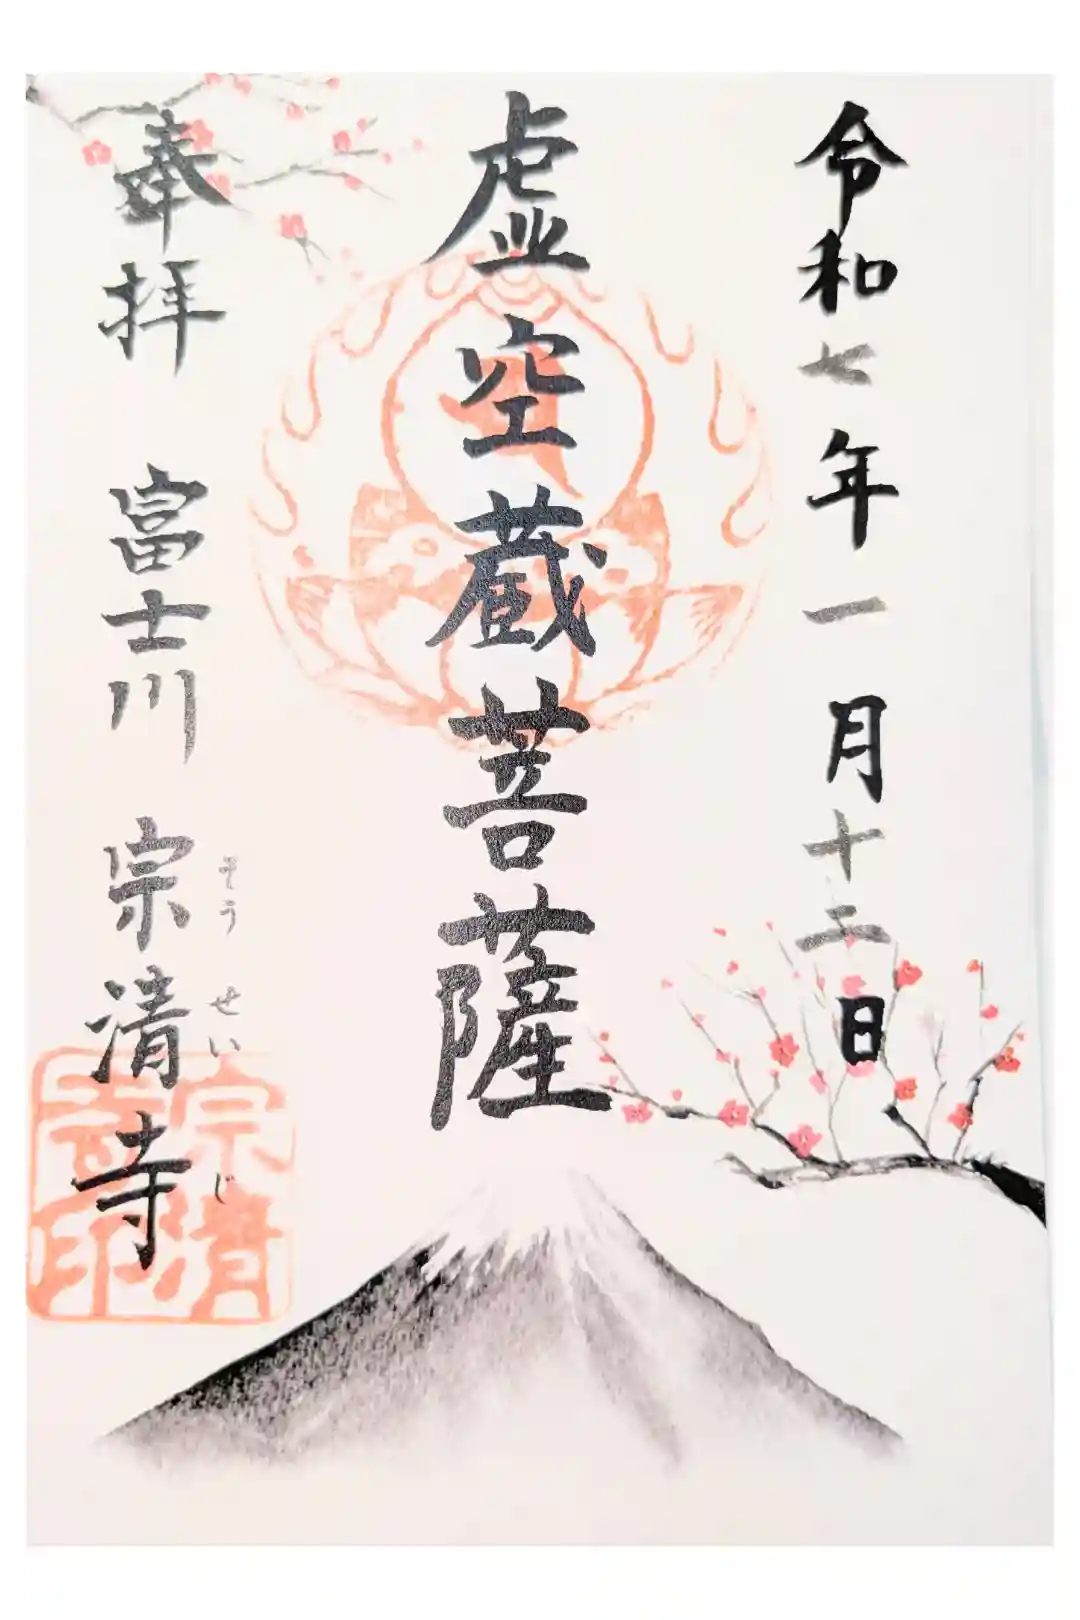 令和七年一月十二日
虚空蔵菩薩
奉拝 富士川 宗清寺
そう せい じ
宗清寺印